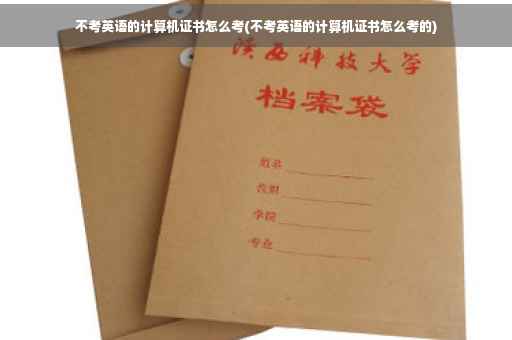 不考英语的计算机证书怎么考(不考英语的计算机证书怎么考的)
陕西科技大学
档案袋
姓名
教职
学院
专业